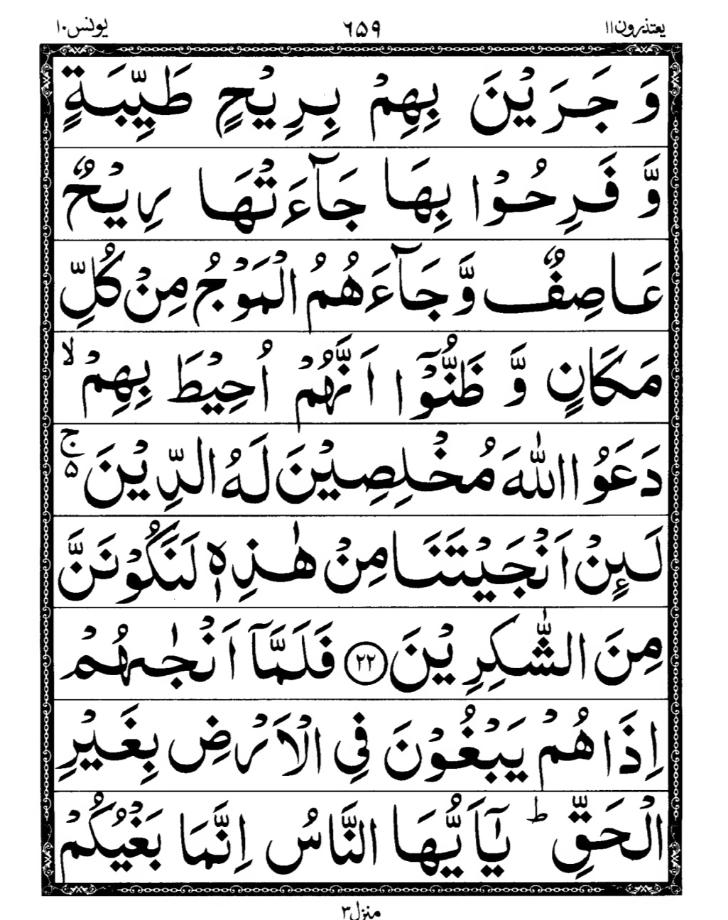 یعتذرون۱۱ ۶۵۹ یونس۱۰
وَ جَرَیْنَ بِهِمْ بِرِیْحٍ طَیِّبَةٍ
وَّ فَرِحُوْا بِهَا جَآءَتْهَا رِیْحٌ
عَاصِفٌ وَّجَآءَهُمُ الْمَوْجُ مِنْ كُلِّ
مَكَانٍ وَّ ظَنُّوْۤا اَنَّهُمْ اُحِیْطَ بِهِمْ ۙ
دَعَوُا اللّٰهَ مُخْلِصِیْنَ لَهُ الدِّیْنَ ۚ۬
لَىِٕنْ اَنْجَیْتَنَا مِنْ هٰذِهٖ لَنَكُوْنَنَّ
مِنَ الشّٰكِرِیْنَ ۝۲۲ فَلَمَّاۤ اَنْجٰىهُمْ
اِذَا هُمْ یَبْغُوْنَ فِی الْاَرْضِ بِغَیْرِ
الْحَقِّ ؕ یٰۤاَیُّهَا النَّاسُ اِنَّمَا بَغْیُكُمْ
منزل۳